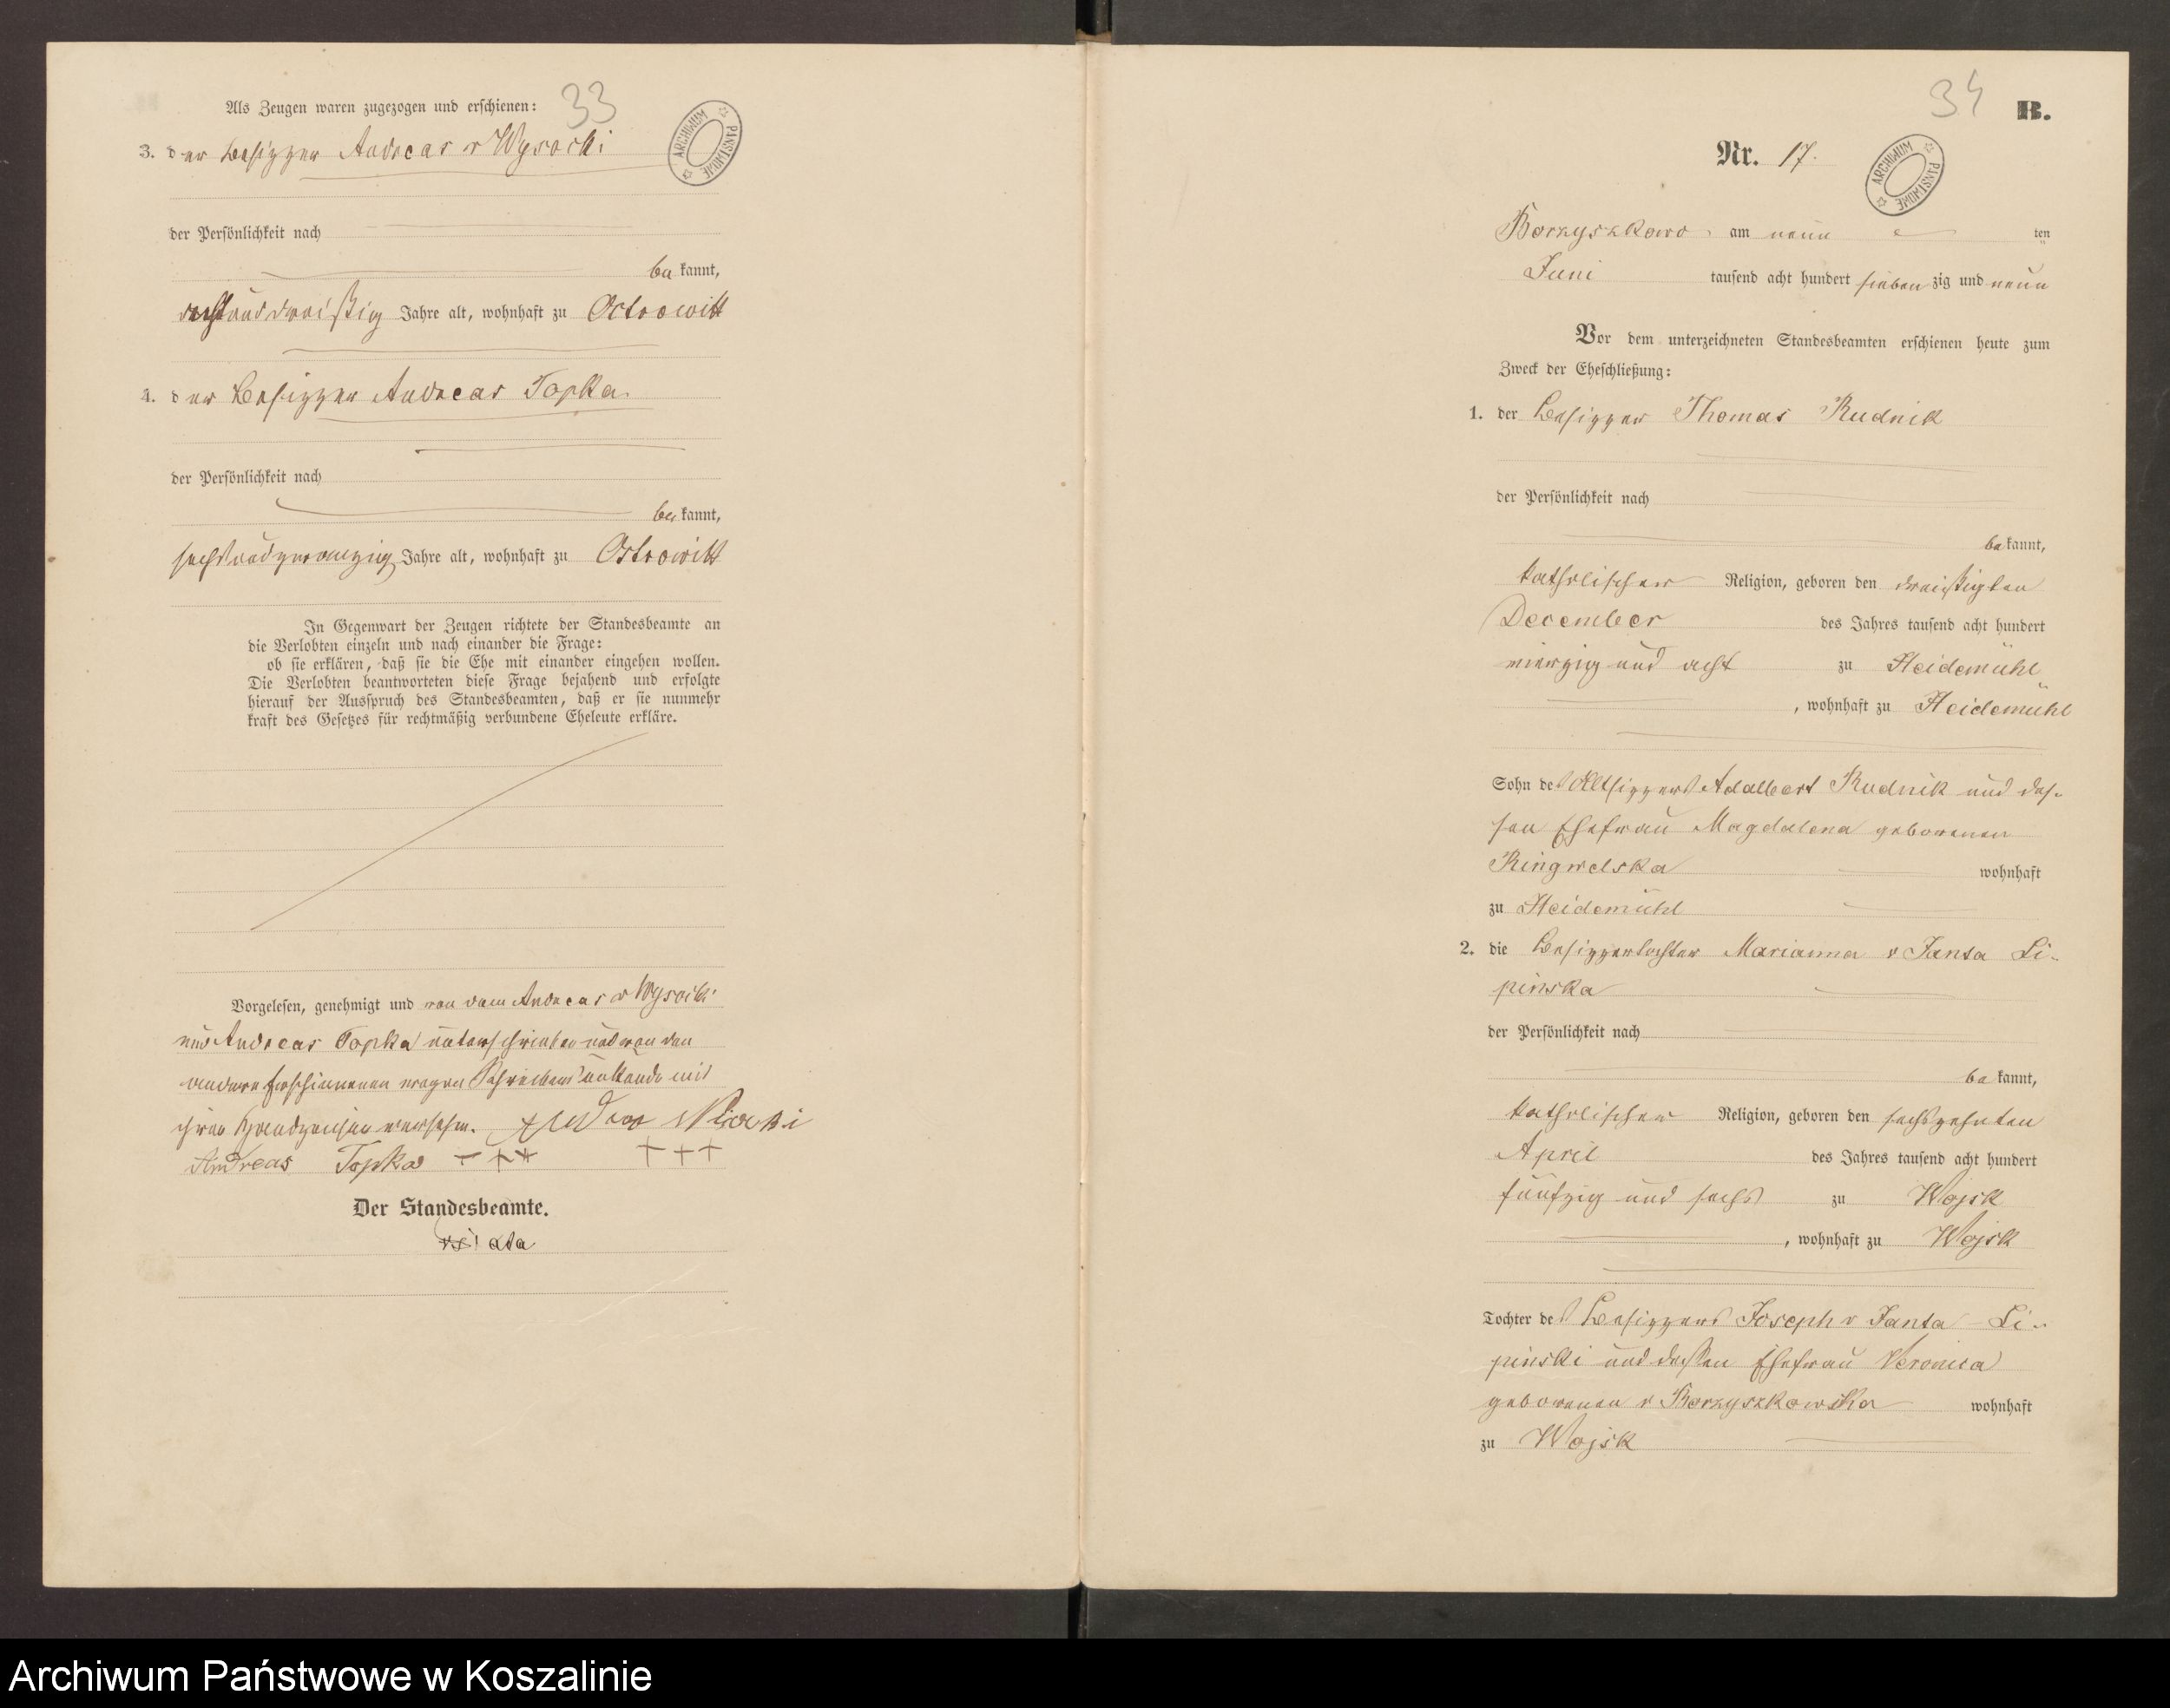 33
Als Zeugen waren zugezogen und erschienen:
ARCHIWUM PAŃSTWOWE
3. der Besitzer Andreas v Wysocki
der Persönlichkeit nach
be kannt,
Jahre alt, wohnhaft zu Ostrowitt
4. der Besitzer Andreas Topka
der Persönlichkeit nach
be kannt,
sechsundzwanzig Jahre alt, wohnhaft zu Ostrowitt
In Gegenwart der Zeugen richtete der Standesbeamte an
die Verlobten einzeln und nach einander die Frage:
ob sie erklären, daß sie die Ehe mit einander eingehen wollen.
Die Verlobten beantworteten diese Frage bejahend und erfolgte
hierauf der Ausspruch des Standesbeamten, daß er sie nunmehr
kraft des Gesetzes für rechtmäßig verbundene Eheleute erkläre.
Vorgelesen, genehmigt und von dem Andreas v Wysocki
und Andreas Topka unterschrieben und von den
andern Erschienenen wegen Schreibens unkunde mit
ihren Handzeichen versehen.
Andreas Topka +++ +++
Der Standesbeamte.
34
B.
Nr. 17.
ARCHIWUM PAŃSTWOWE
Borzyszkowo am neun ten
Juni tausend acht hundert sieben zig und neun
Vor dem unterzeichneten Standesbeamten erschienen heute zum
Zweck der Eheschließung:
1. der Besitzer Thomas Rudnik
der Persönlichkeit nach
be kannt,
katholischer Religion, geboren den dreißigsten
December des Jahres tausend acht hundert
vierzig und acht zu Heidemühl
, wohnhaft zu Heidemühl
Sohn des Altsitzers Adalbert Rudnik und des-
sen Ehefrau Magdalena geborenen
Ringwelska wohnhaft
zu Heidemühl
2. die Besitzertochter Marianna v Janta Li-
pinska
der Persönlichkeit nach
be kannt,
katholischer Religion, geboren den sechszehnten
April des Jahres tausend acht hundert
fünfzig und sechs zu Wojsk
, wohnhaft zu Wojsk
Tochter des Besitzers Joseph v Janta - Li-
pinski und dessen Ehefrau Veronica
geborenen v Borzyszkowska wohnhaft
zu Wojsk
Archiwum Państwowe w Koszalinie